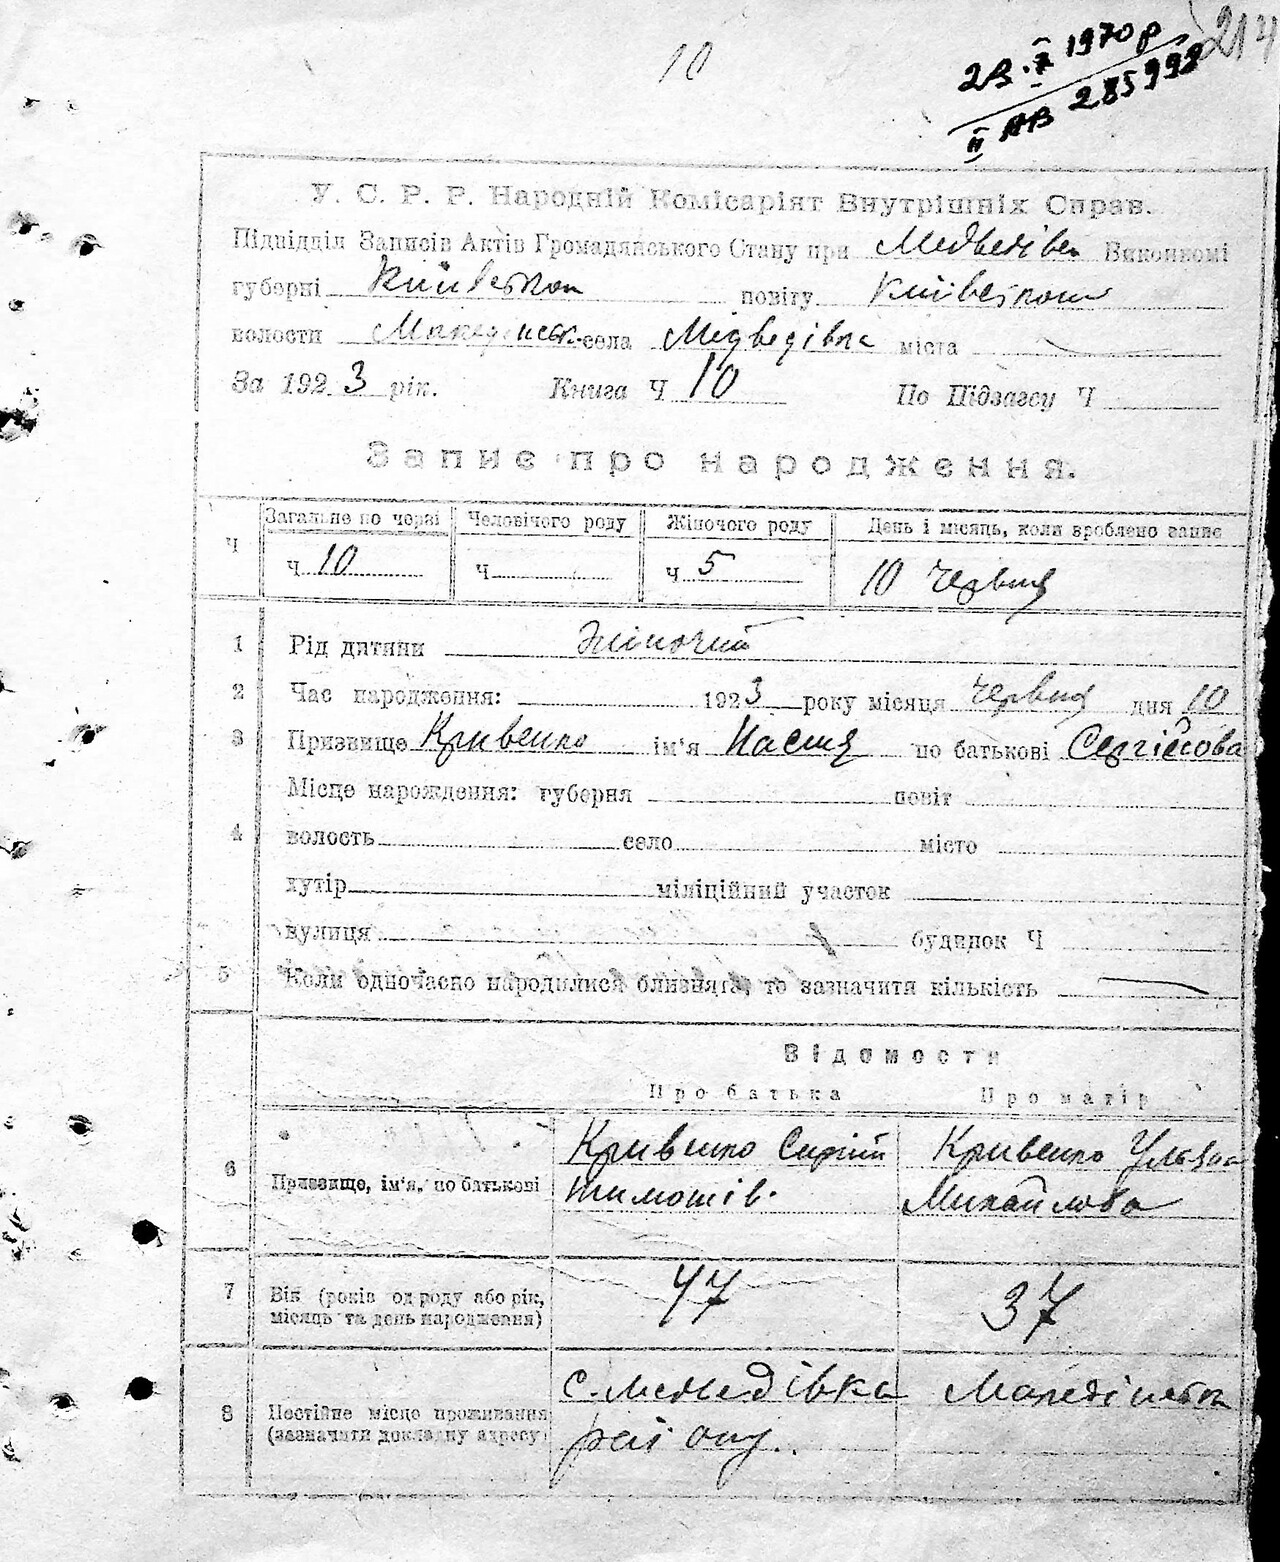 10
214
23.X 1970 р
II АВ 285998
У. С. Р. Р. Народній Комісаріят Внутрішніх Справ.
Підвідділ Записів Актів Громадянського Стану при Медведівск Виконкомі
губерні Київської повіту Київського
волости села Мідведівка міста
За 1923 рік. Книга Ч 10 По Підзагсу Ч
Запис про народження.
Ч Загальне по черзі Человічого роду Жіночого роду День і місяць, коли зроблено запис
ч 10 ч ч 5 10 червня
1 Рід дитини Жіночий
2 Час народження: 1923 року місяця червня дня 10
3 Призвище Кривенко ім'я Настя по батькові Сергійова
Місце народження: губерня повіт
4 волость село місто
хутір міліційний участок
вулиця будинок Ч
5 Коли одночасно народилися близнята, то зазначити кількість
Відомости
Про батька Про матір
6 Призвище, ім'я, по батькові Кривенко Сергій Кривенко Уляна
Тимошів. Михайлова
7 Вік (років од роду або рік, 47 37
місяць та день народження)
8 Постійне місце проживання с. Медведівка
(зазначити докладну адресу) району.